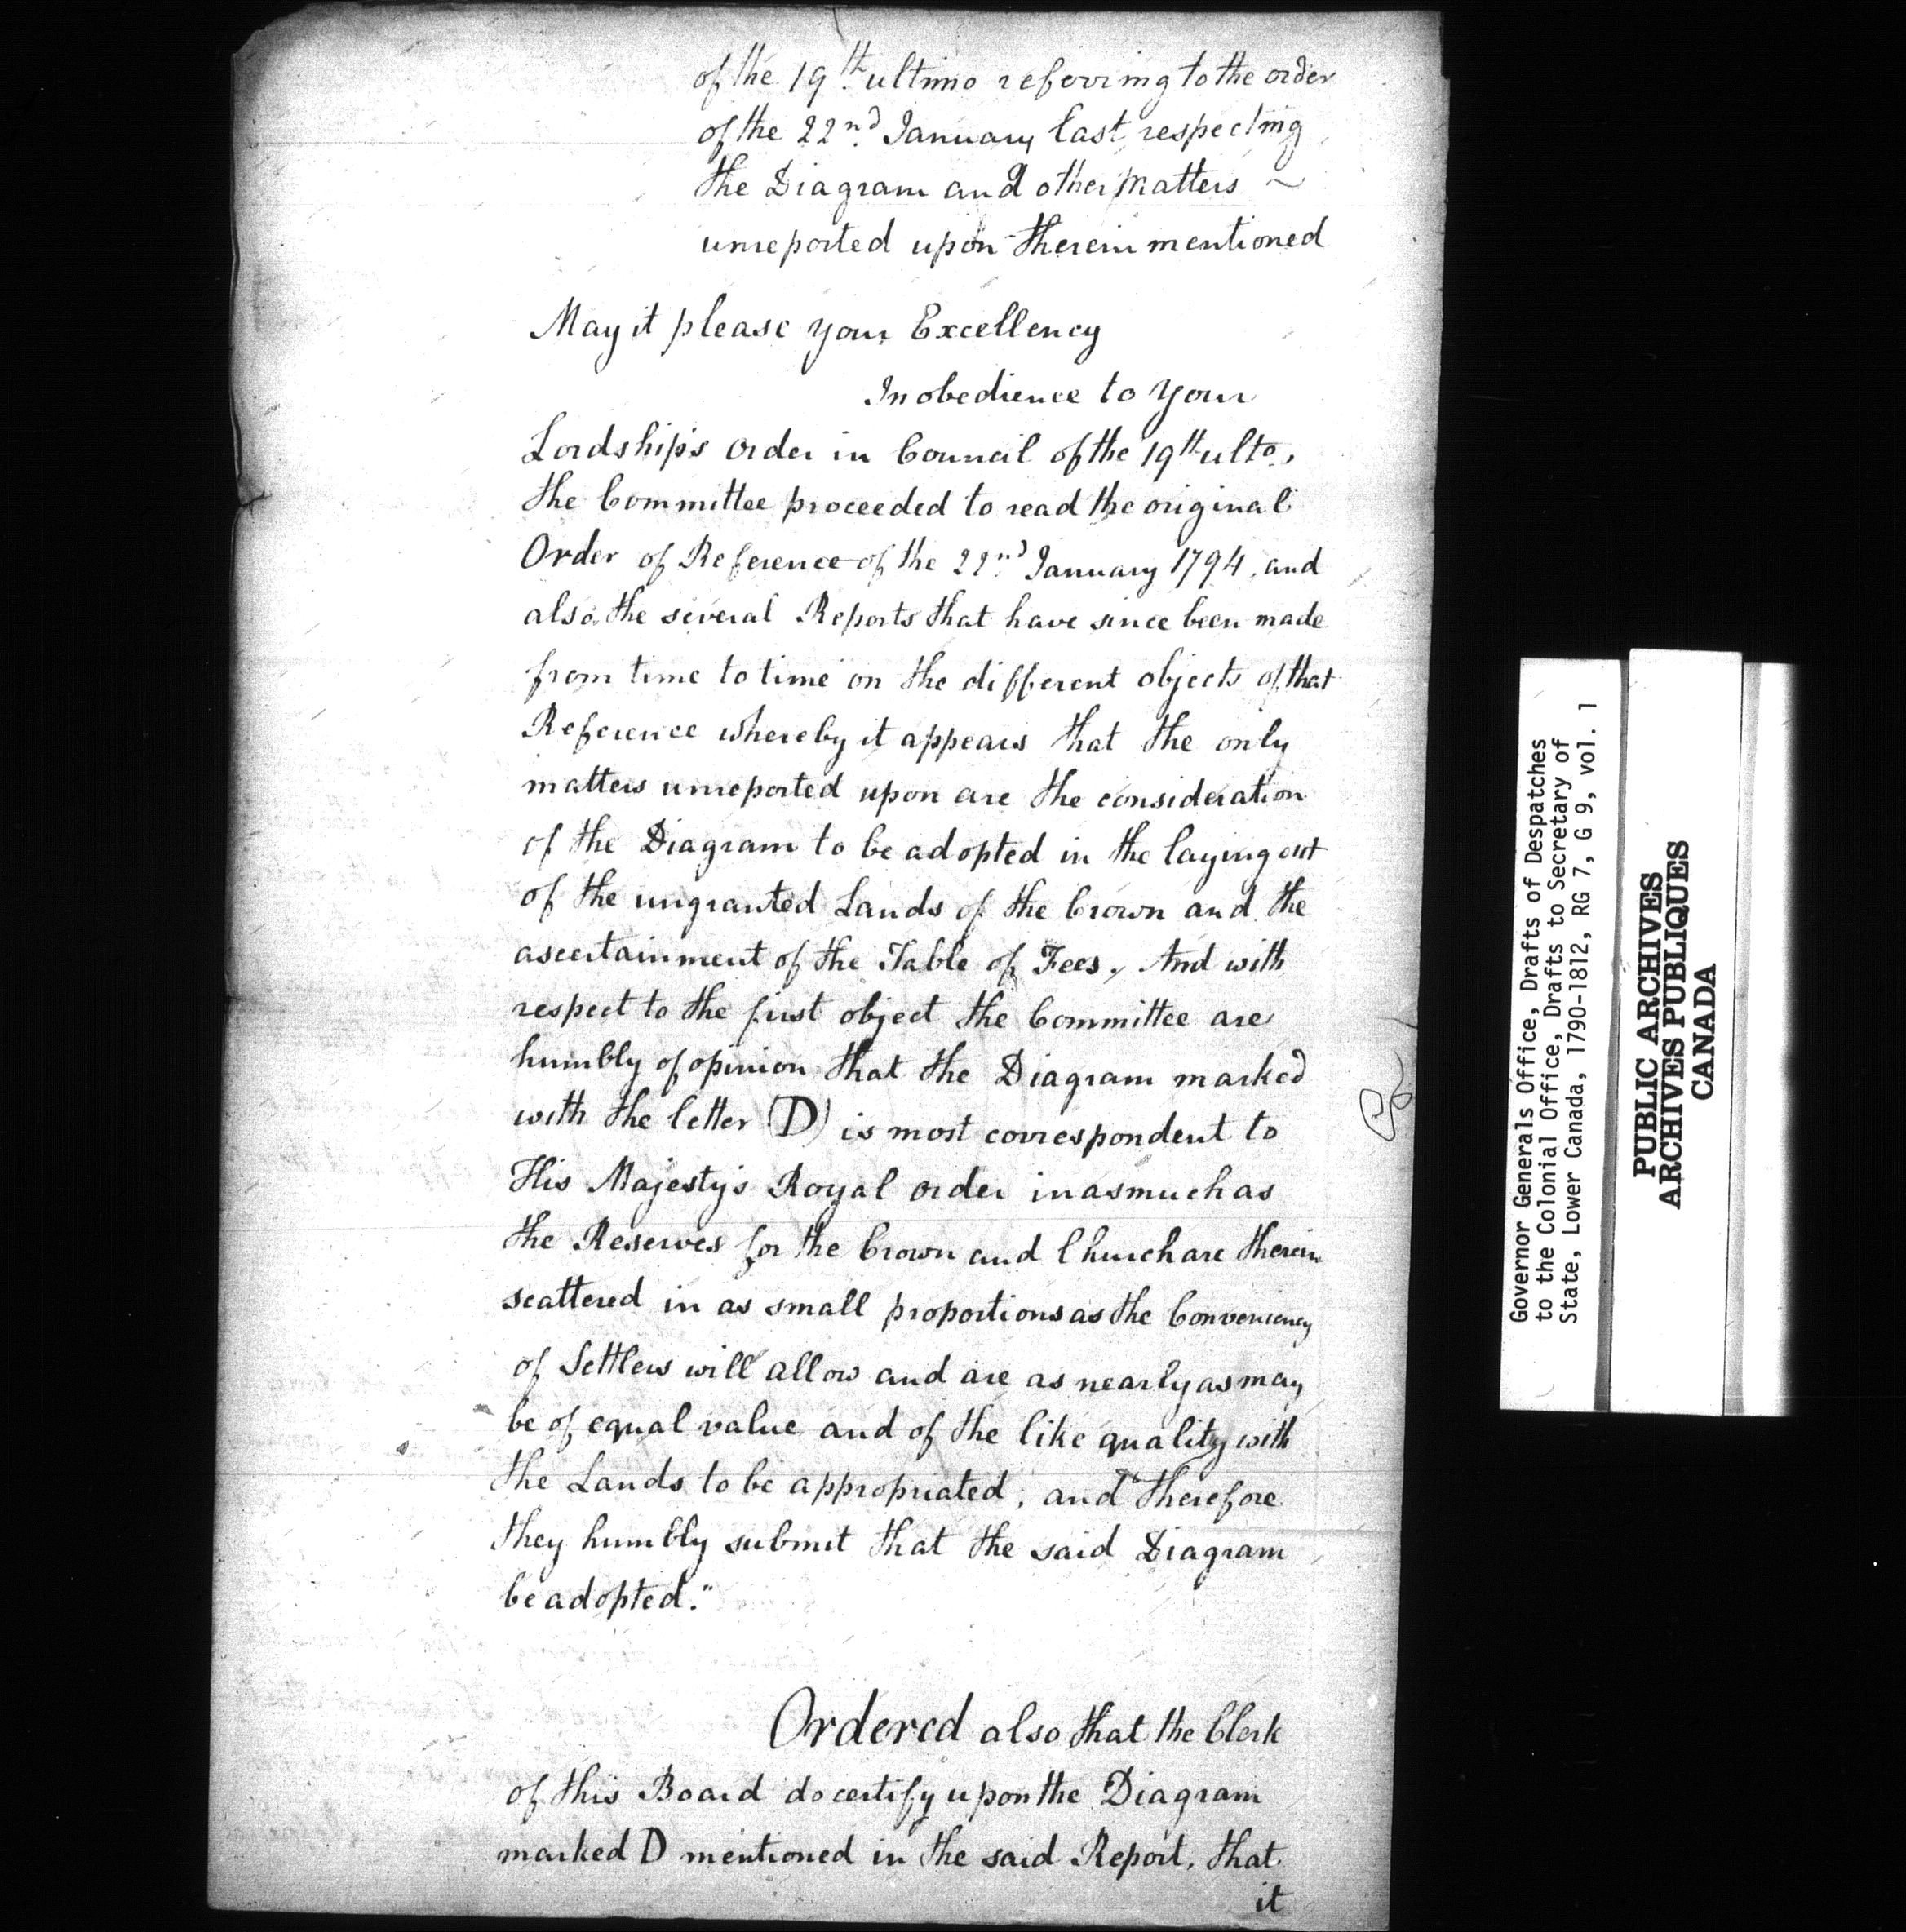 of the 19th ultimo referring to the order
of the 22nd January last respecting
the Diagram and other Matters ~
unreported upon therein mentioned
May it please your Excellency
In obedience to Your
Lordship's Order in Council of the 19th ulto,
the Committee proceeded to read the original
Order of Reference of the 22nd January 1794, and
also the several Reports that have since been made
from time to time on the different objects of that
Reference whereby it appears that the only
matters unreported upon are the consideration
of the Diagram to be adopted in the laying out
of the ungranted Lands of the Crown and the
ascertainment of the Table of Fees, And with
respect to the first object the Committee are
humbly of opinion that the Diagram marked
with the letter (D) is most correspondent to
His Majesty's Royal Order inasmuch as
the Reserves for the Crown and Church are therein
scattered in as small proportions as the Conveniency
of Settlers will allow and are as nearly as may
be of equal value and of the like quality with
the Lands to be appropriated, and therefore
they humbly submit that the said Diagram
be adopted."
Ordered also that the Clerk
of this Board do certify upon the Diagram
marked D mentioned in the said Report, that
it
Governor Generals Office, Drafts of Despatches
to the Colonial Office, Drafts to Secretary of
State, Lower Canada, 1790-1812, RG 7, G 9, vol. 1
PUBLIC ARCHIVES
ARCHIVES PUBLIQUES
CANADA